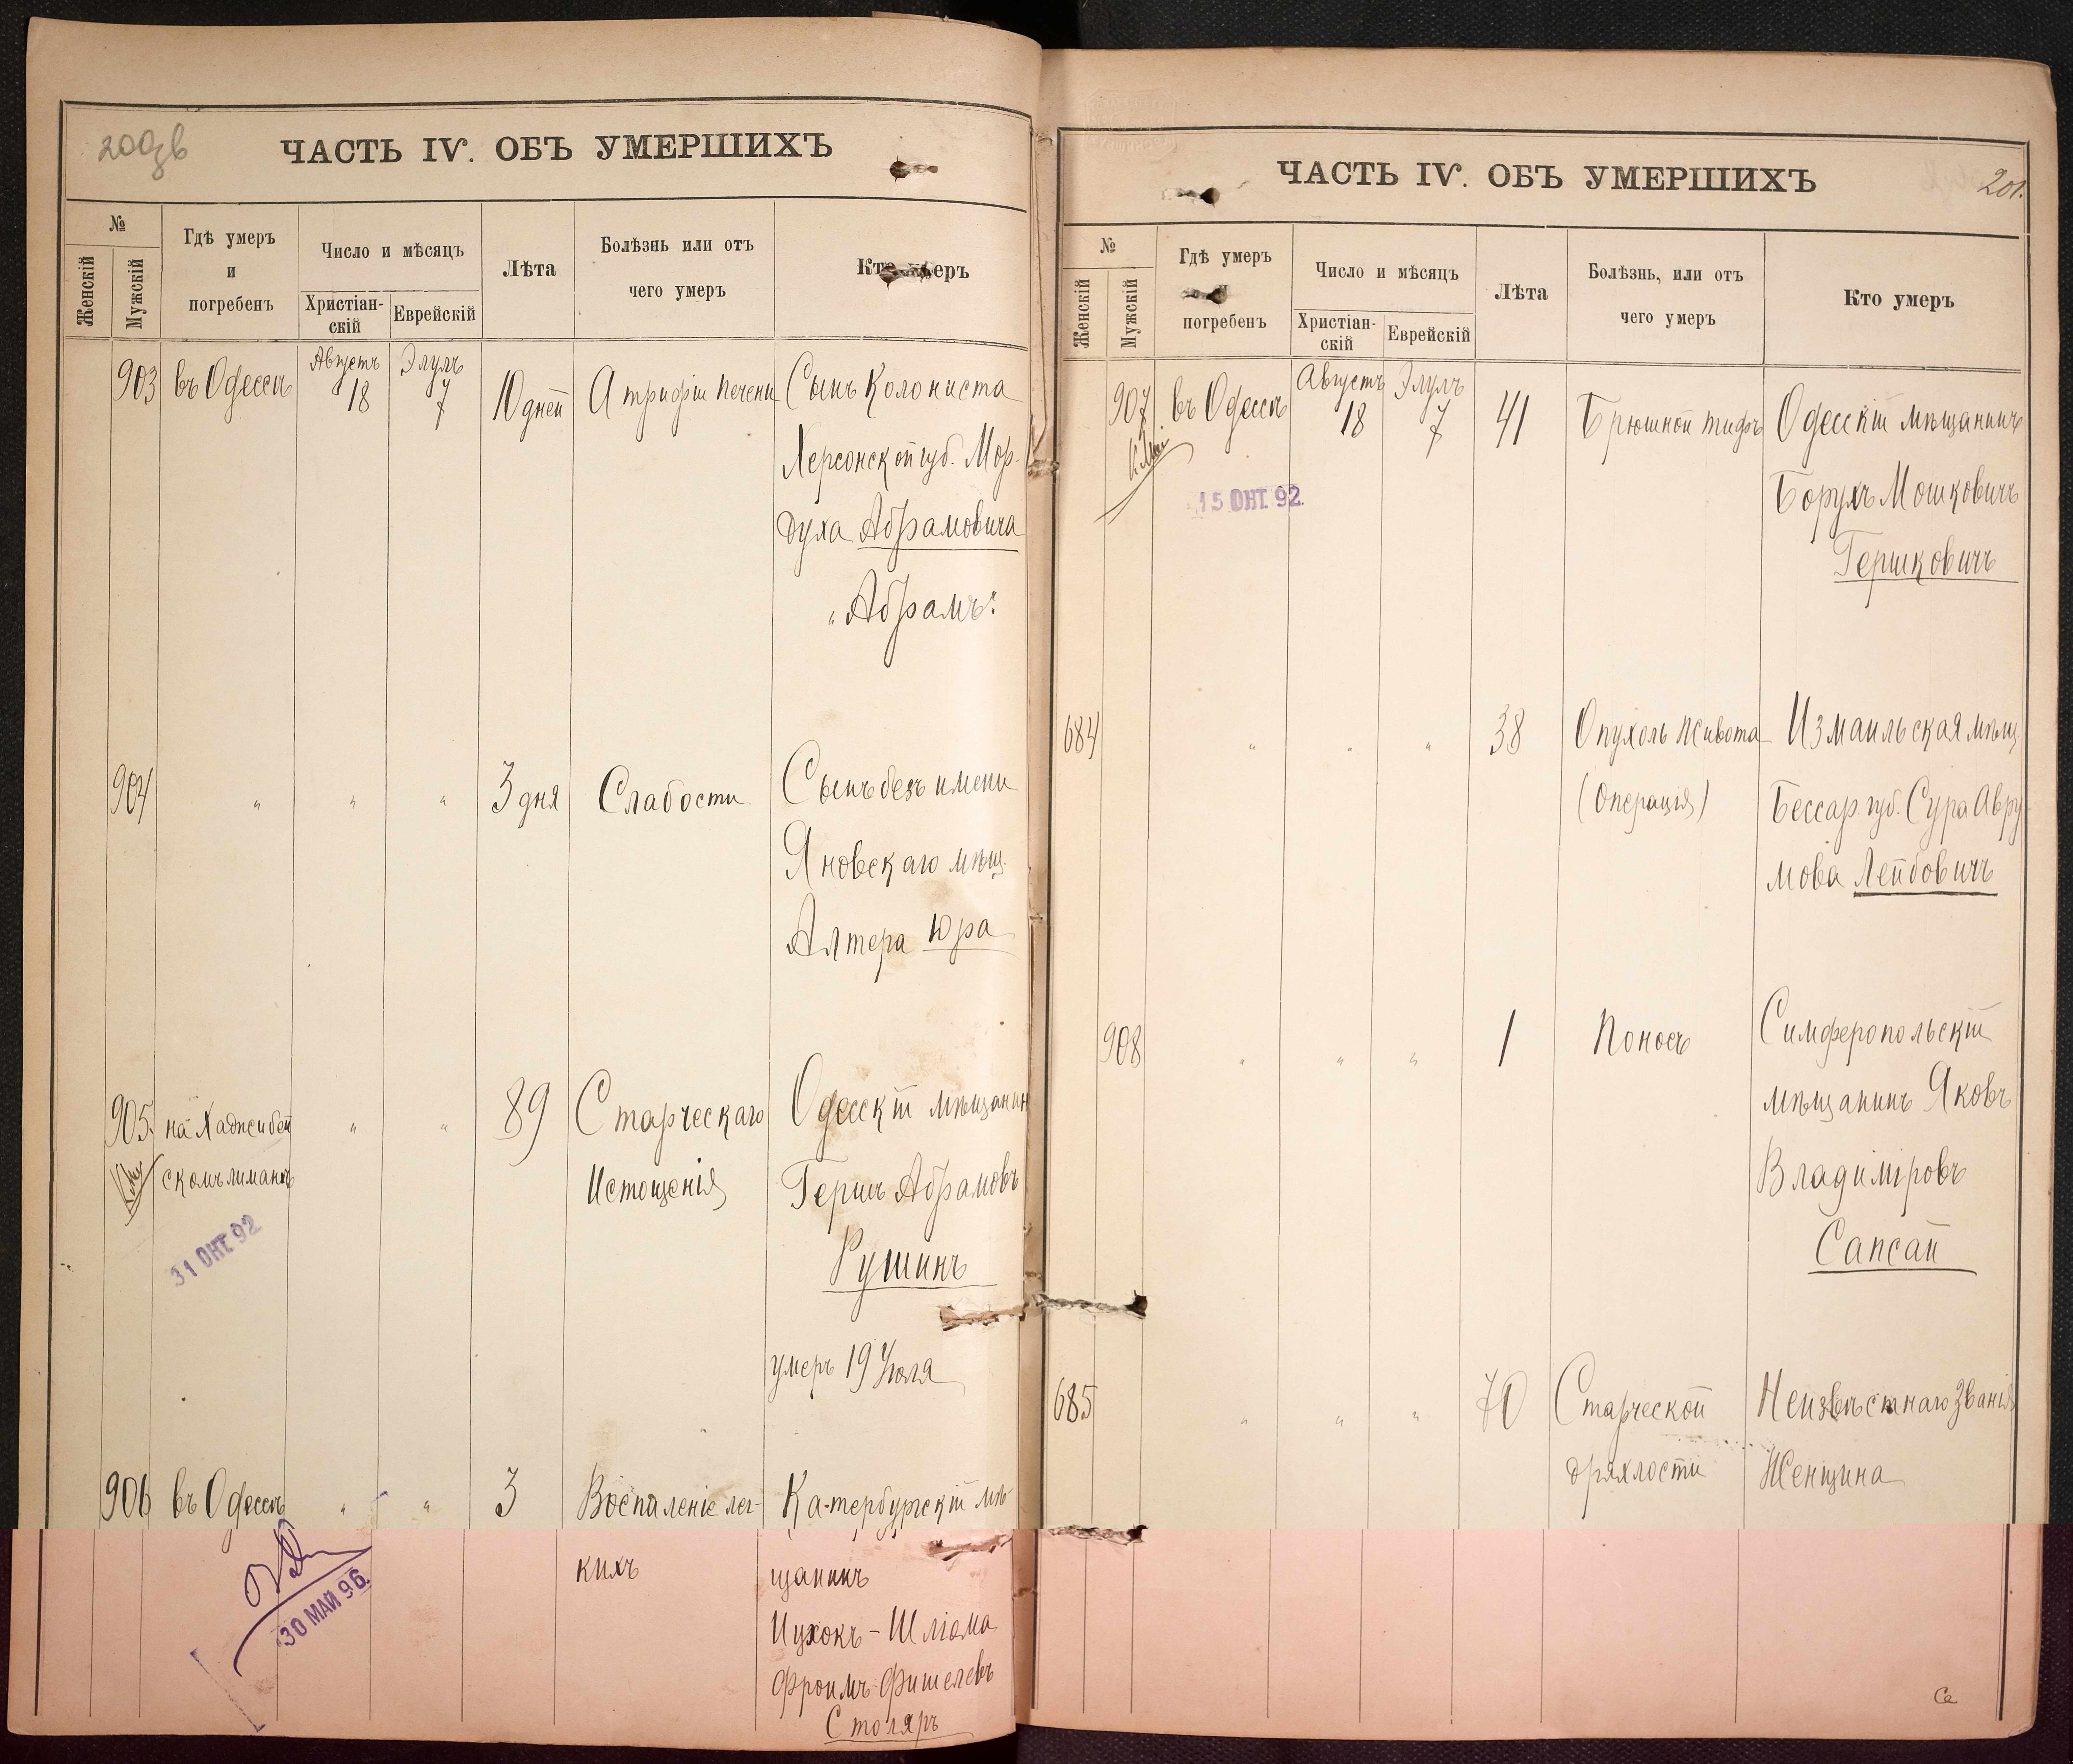 200об
ЧАСТЬ IV. ОБЪ УМЕРШИХЪ
№
Женскій
Мужскій
Гдѣ умеръ
и
погребенъ
Число и мѣсяцъ
Христіан-
скій
Еврейскій
Лѣта
Болѣзнь или отъ
чего умеръ
Кто умеръ
903 въ Одессѣ Августъ 18 Элулъ 7 10 дней Атрофіи печени Сынъ колониста
Херсонской губ. Мор-
духа Абрамовича
„Абрамъ“
904 " " " 3 дня Слабости Сынъ безъ имени
Яновскаго мѣщ.
Алтера Юра
905 на Хаджибей " " 89 Старческаго Одесскій мѣщанин
скомъ лиманѣ Истощенія Гершъ Абрамовъ
Рушинъ
31 ОКТ. 92
умеръ 19 Іюля
906 въ Одессѣ " " 3 Воспаленіе лег- Ка-тербургскій мѣ-
кихъ щанинъ
30 МАЙ 96.
Ицхокъ-Шліома
Фроимъ-Фишелевъ
Столяръ
ЧАСТЬ IV. ОБЪ УМЕРШИХЪ
201.
№
Женскій
Мужскій
Гдѣ умеръ
погребенъ
Число и мѣсяцъ
Христіан-
скій
Еврейскій
Лѣта
Болѣзнь, или отъ
чего умеръ
Кто умеръ
907 въ Одессѣ Августъ 18 Элулъ 7 41 Брюшной тифъ Одесскій мѣщанинъ
15 ОКТ. 92.
Борухъ Мошковичъ
Гершковичъ
684 " " " 38 Опухоль живота Измаильская мѣщ.
(Операція) Бессар. губ. Сура Авру-
мова Лейбовичъ
908 " " " 1 Поносъ Симферопольскій
мѣщанинъ Яковъ
Владиміровъ
Сапсай
685 " " " 70 Старческой Неизвѣстнаго Званія
дряхлости Женщина